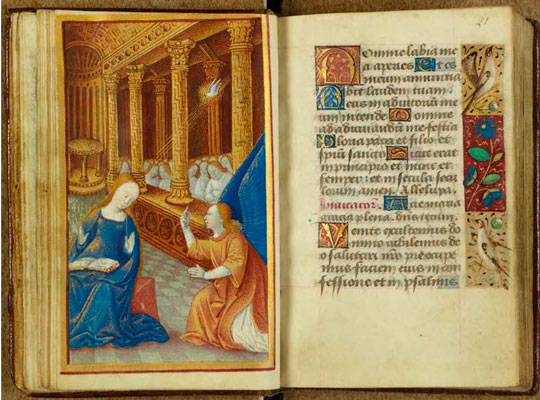 21
Domine labia me
a aperies Et os
meum annuntia
bit laudem tuam
Deus in adiutoriũ me
um intende Domine
ad adiuvandũ me festina
Gloria patri et filio et
spũi sancto Sicut erat
in principio et nunc et
semper et in secula secu
lorum amen. Alleluya
Ave maria
gracia plena dñs tecum
Venite exultemus do
mino iubilemus deo
salutari nrõ preoccupe
mus faciem eius in con
fessione et in psalmis